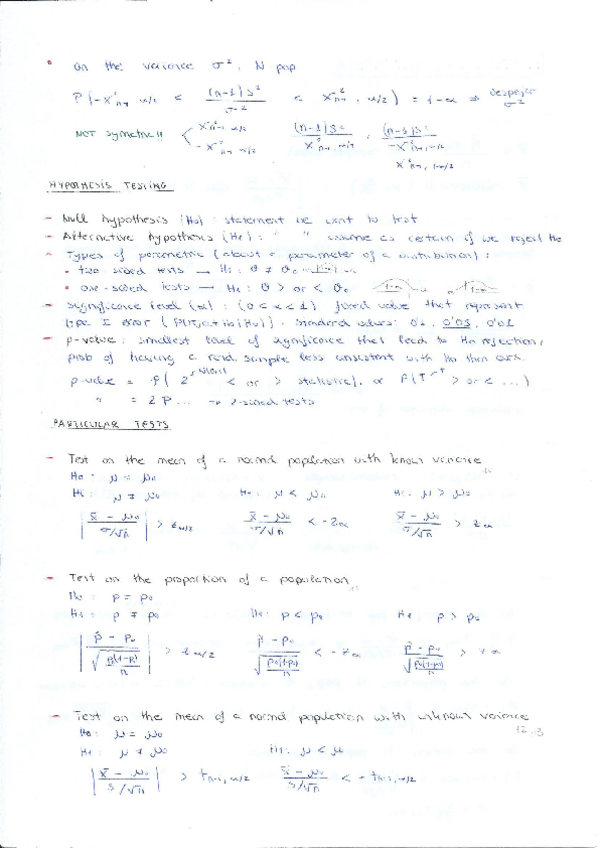 • On the variance σ², N pop
P(-χ²n-1, α/2 < (n-1)s²/σ² < χ²n-1, α/2) = 1-α ⇒ despejar σ²
NOT symetric!! < χ²n-1, α/2 (n-1)s²/χ²n-1, α/2 , (n-1)s²/-χ²n-1, α/2
-χ²n-1, α/2 χ²n-1, 1-α/2
HYPOTHESIS TESTING
- Null hypothesis (H0): statement we want to test
- Alternative hypothesis (H1): " " assume as certain if we reject H0
- Types of parametric (about a parameter of a distribution):
• two sided tests → H1: θ ≠ θ0
• one-sided tests → H1: θ > or < θ0
- Significance level (α): (0<α<1) fixed value that represent
type I error (P(reject H0|H0)). Standard values: 0'1, 0'05, 0'01
- p-value: smallest level of significance that lead to H0 rejection,
prob of having a sample less consistent with H0 than ours.
p-value = P( < or > statistic), or P( > or < ...)
" = 2P... → 2-sided tests
PARTICULAR TESTS
- Test on the mean of a normal population with known variance
H0: μ = μ0
H1: μ ≠ μ0 H1: μ < μ0 H1: μ > μ0
|x̄ - μ0 / σ/√n| > zα/2 x̄ - μ0 / σ/√n < -zα x̄ - μ0 / σ/√n > zα
- Test on the proportion of a population
H0: p = p0
H1: p ≠ p0 H1: p < p0 H1: p > p0
|p̂ - p0 / √(p0(1-p0)/n)| > zα/2 p̂ - p0 / √(p0(1-p0)/n) < -zα p̂ - p0 / √(p0(1-p0)/n) > zα
- Test on the mean of a normal population with unknown variance
H0: μ = μ0
H1: μ ≠ μ0 H1: μ < μ
|x̄ - μ0 / s/√n| > tn-1, α/2 x̄ - μ0 / s/√n < -tn-1, α/2